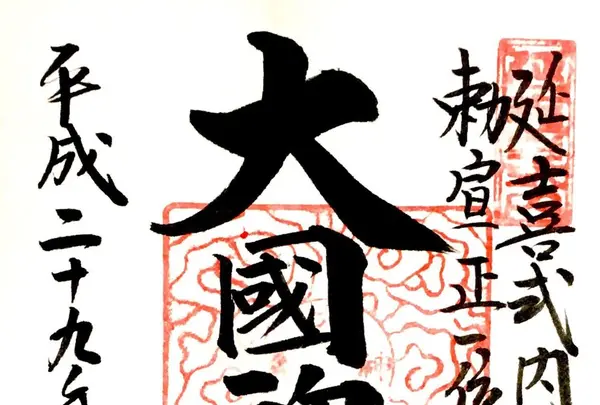 延喜式内
勅宣正一位
大國
平成二十九年